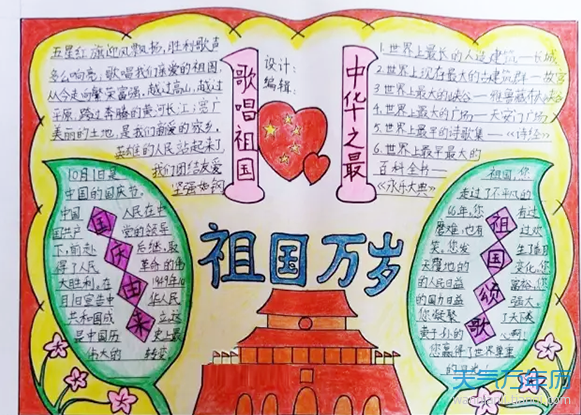 五星红旗迎风飘扬,胜利歌声
多么响亮,歌唱我们亲爱的祖国,
从今走向繁荣富强,越过高山,越过
平原,跨过奔腾的黄河长江;宽广
美丽的土地,是我们亲爱的家乡,
英雄的人民站起来了
我们团结友爱
坚强如钢
歌唱祖国
设计:
编辑:
中华之最
1.世界上最长的人造建筑——长城
2.世界上现存最大的古建筑群——故宫
3.世界上最大的峡谷——雅鲁藏布大峡谷
4.世界上最大的广场——天安门广场
5.世界上最早的诗歌集——《诗经》
6.世界上最早最大的
百科全书——
《永乐大典》
祖国万岁
国庆由来
10月1日是
中国的国庆节。
中国 人民在中
国共产 党的领导
下,前赴 后继,取
得了人民 革命的伟
大胜利,在 1949年10
月1日宣告中 华人民
共和国成 立,这
是中国历 史上最
伟大的 转变
祖国颂歌
祖国,您
走过了不平凡的
66年,您 有过
磨难,也有 过欢
笑,您发 生了翻
天覆地的 变化,您
的人民日益 富裕,您
的国力日益 强大。
您凝聚 了天下炎
黄子孙的 心啊!
您赢得了世界尊重
天气万年历